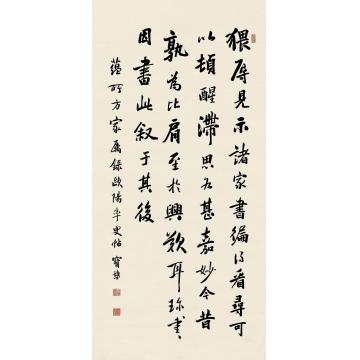 猥辱見示諸家書編得看尋可
以頓醒滯思為甚嘉妙今昔
孰為比肩至於興歎耳珎書
因書此叙于其後
蘊所方家属錄歐陽率更帖 寶